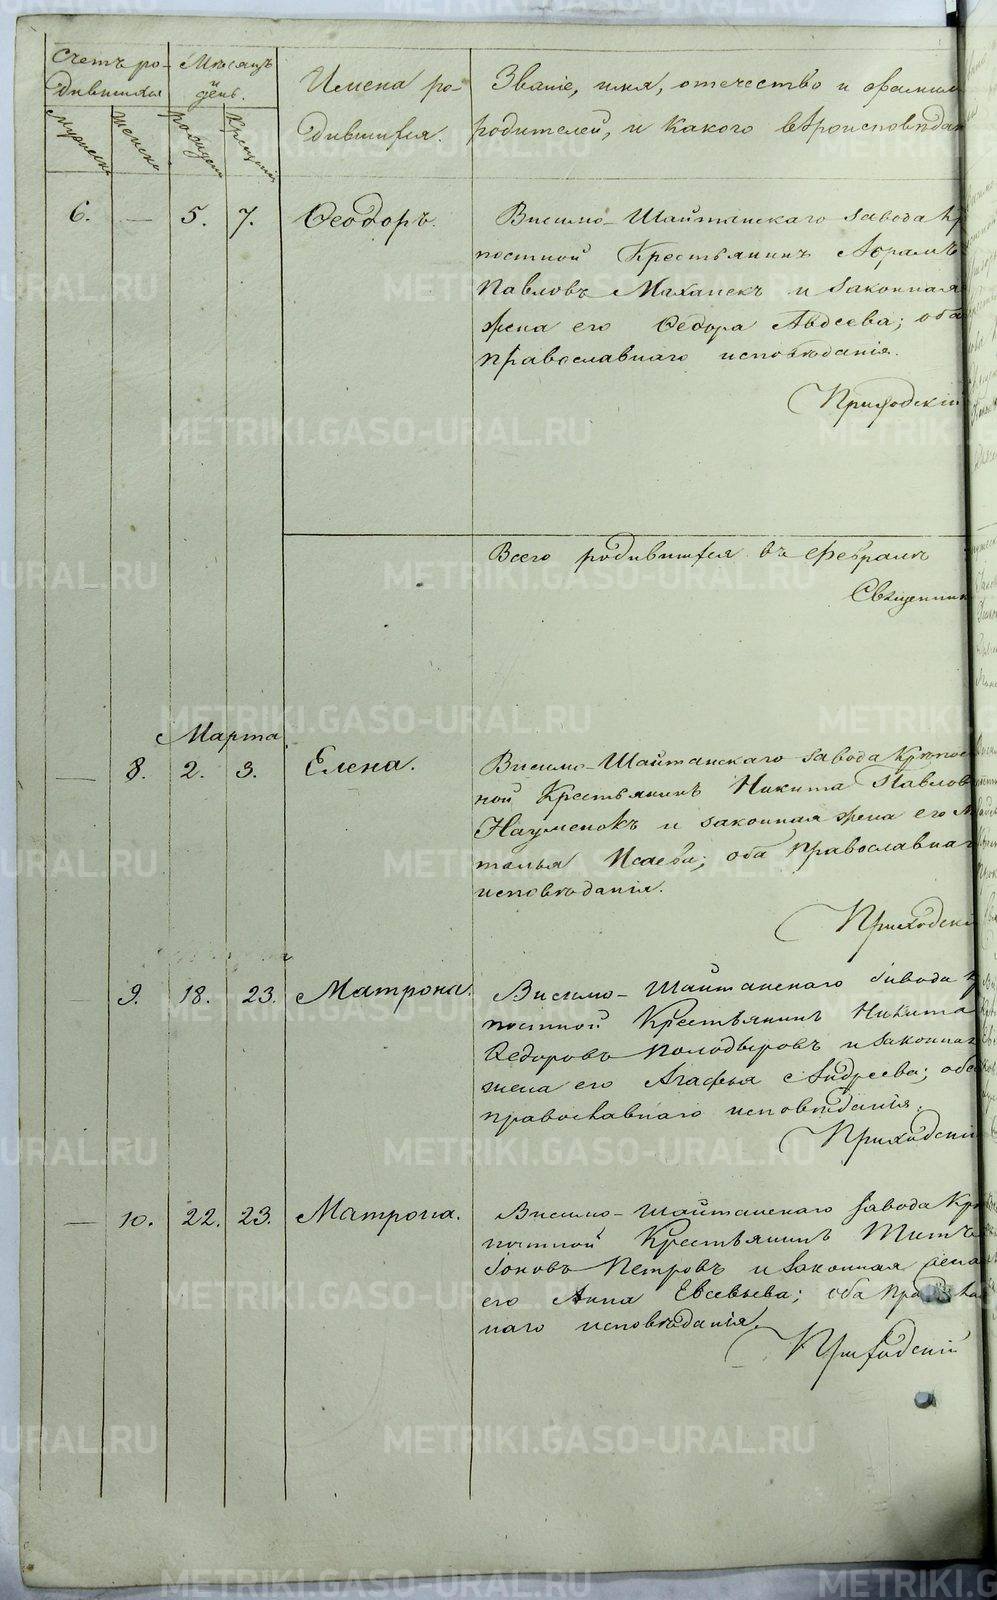 Счетъ ро-
дившихся
Мѣсяцъ
и
день.
Имена ро-
дившихся.
Званіе, имя, отечество и фамил
родителей, и какого вѣроисповѣдан
мужеска
женска
рожден
крещенія
6. — 5. 7. Ѳеодоръ. Висимо-Шайтанскаго завода кр
постной Крестьянинъ Абрамъ
Павловъ Маханекъ и законная
жена его Ѳедора Авдеева; оба
православнаго исповѣданія.
Приходскій
Всего родившихся въ февралѣ
Священник
Марта
— 8. 2. 3. Елена. Висимо-Шайтанскаго завода Крѣпос
ной Крестьянинъ Никита Павлов
Науменокъ и законная жена его На
талья Исаева; оба православнаг
исповѣданія.
Приходскі
9. 18. 23. Матрона. Висимо-Шайтанскаго завода к
постной Крестьянинъ Никита
Ѳедоровъ Холодыровъ и законная
жена его Агафья Андреева; оба
православнаго исповѣданія.
Приходскій
— 10. 22. 23. Матрона. Висимо-Шайтанскаго завода Крѣ
постной Крестьянинъ Титъ
Іоновъ Петровъ и законная жена
его Анна Евсевьева; оба православ
наго исповѣданія.
Приходскій
METRIKI.GASO-URAL.RU